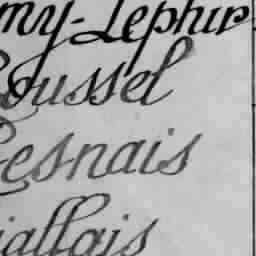 my-Lephir
Roussel
Gesnais
iallais